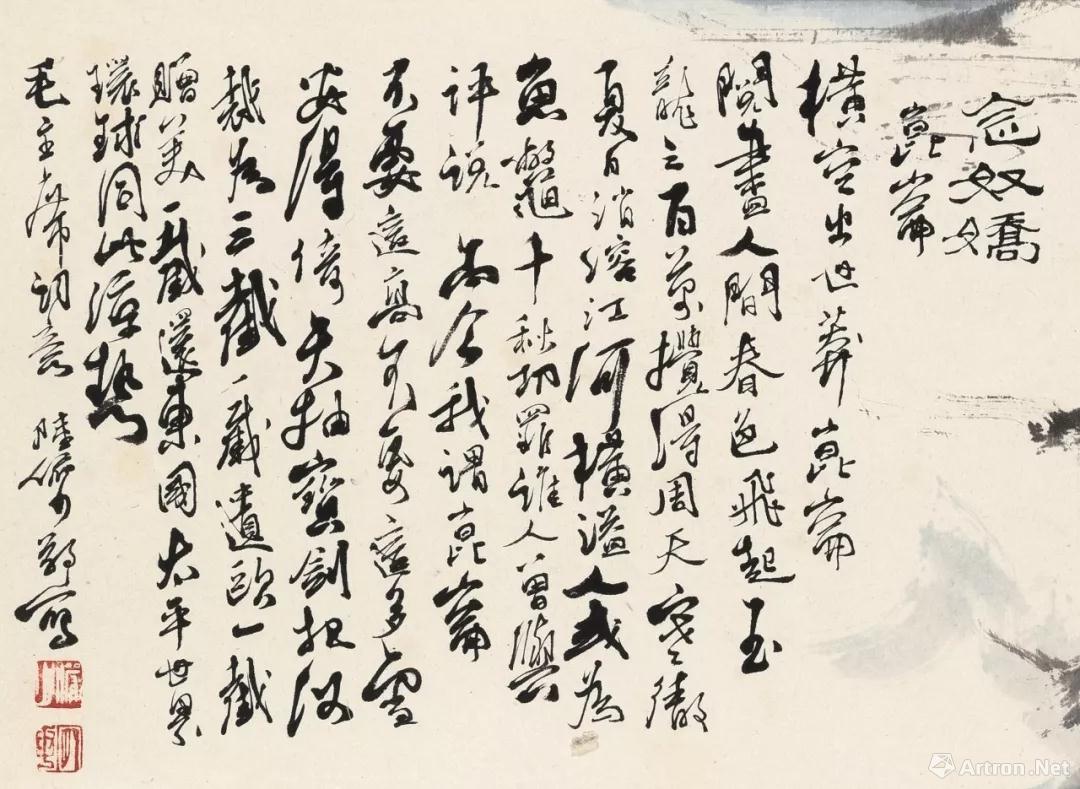 念奴嬌
崑崙
橫空出世莽崑崙
閱盡人間春色飛起玉
龍三百萬攪得周天寒徹
夏日消溶江河橫溢人或為
魚鱉千秋功罪誰人曾與
評說 而今我謂崑崙
不要這高不要這多雪
安得倚天抽寶劍把汝
裁為三截一截遺歐一截
贈美一截還東國太平世界
環球同此涼熱
毛主席詞意 陸儼少 寫
Artron.Net